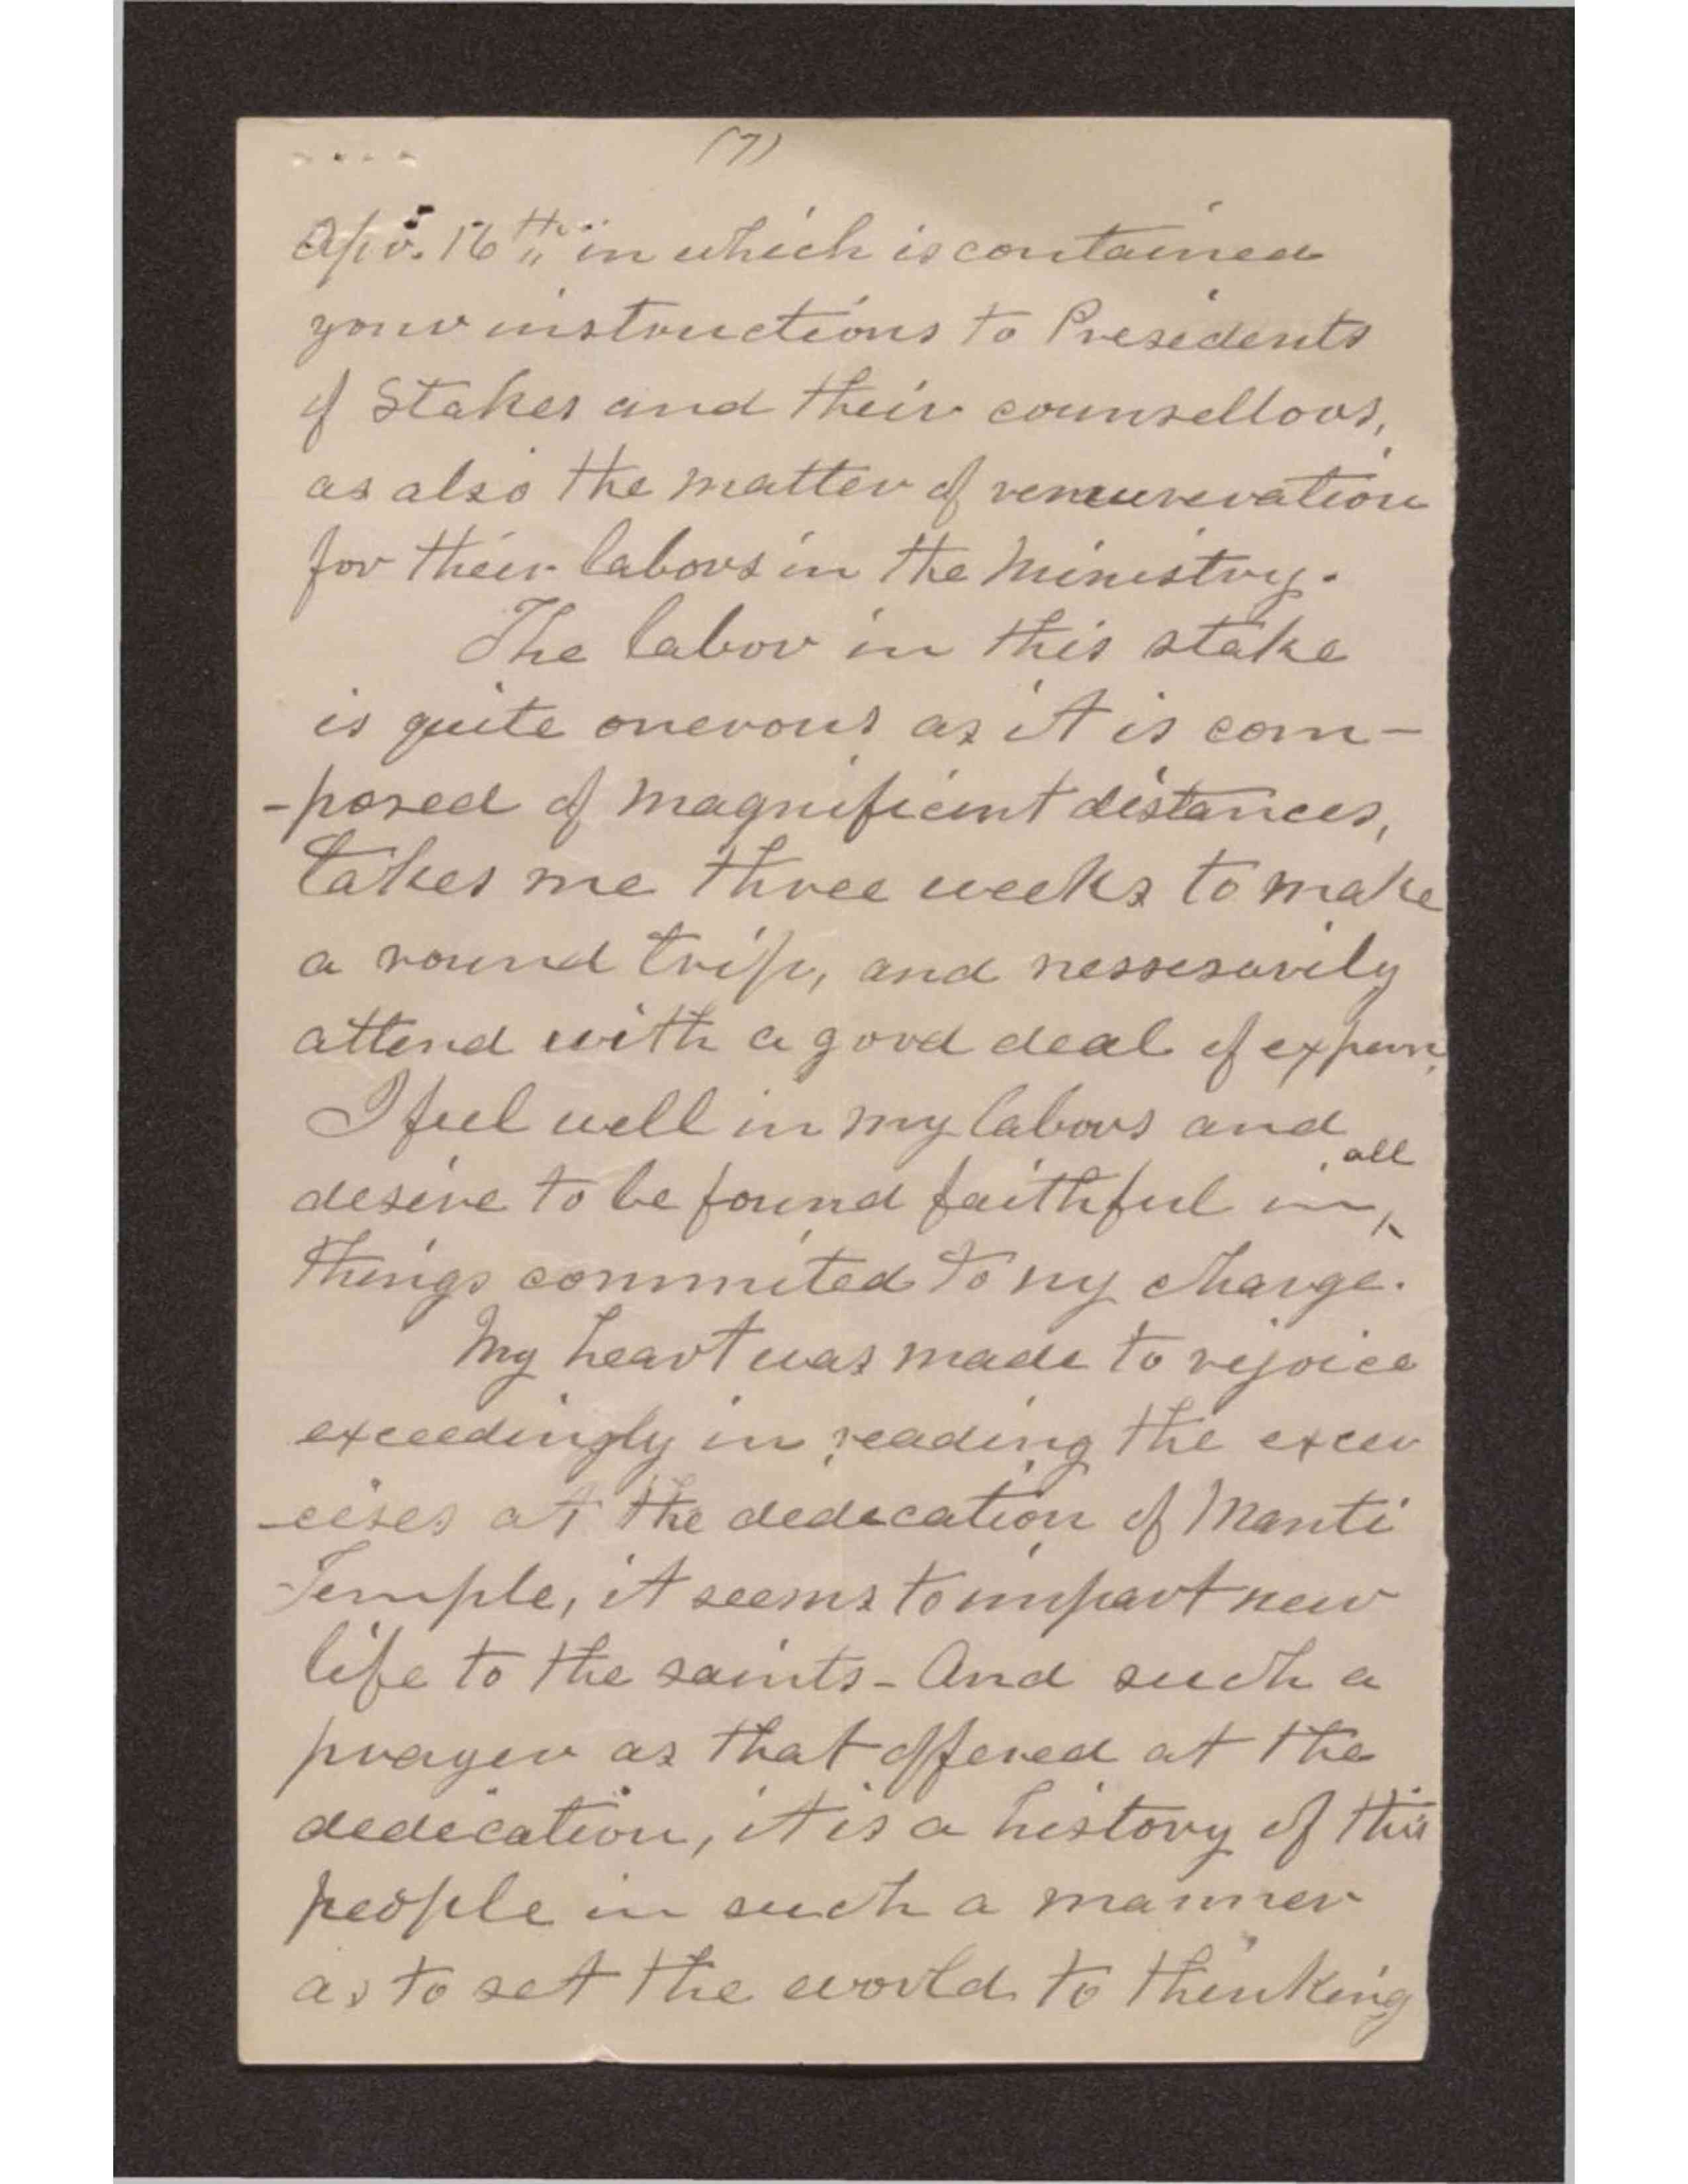 (7)
Apr. 16th" in which is contained
your instructions to Presidents
of Stakes and their counsellors,
as also the matter of remuneration
for their labors in the Ministry.
The labor in this stake
is quite onerous as it is com-
-posed of magnificint distances,
takes me three weeks to make
a round trip, and nessesarily
attend with a good deal of expens,
I feel well in my labors and
all
desire to be found faithful in ‸
things commited to my charge.
My heart was made to rejoice
exceedingly in reading the exer
-cises at the dedication of Manti
Temple, it seems to impart new
life to the saints - And such a
prayer as that offered at the
dedication, it is a history of this
people in such a manner
as to set the world to thinking